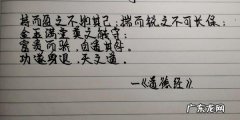 持而盈之不如其已；揣而锐之不可长保；
金玉满堂莫之能守；
富贵而骄，自遗其咎。
功遂身退，天之道。
—《道德经》
广东龙网